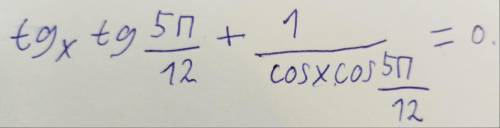 tg x tg 5π/12 + 1/(cosx cos 5π/12) = 0.